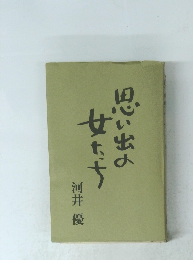 思い出の
女たち
河井 優